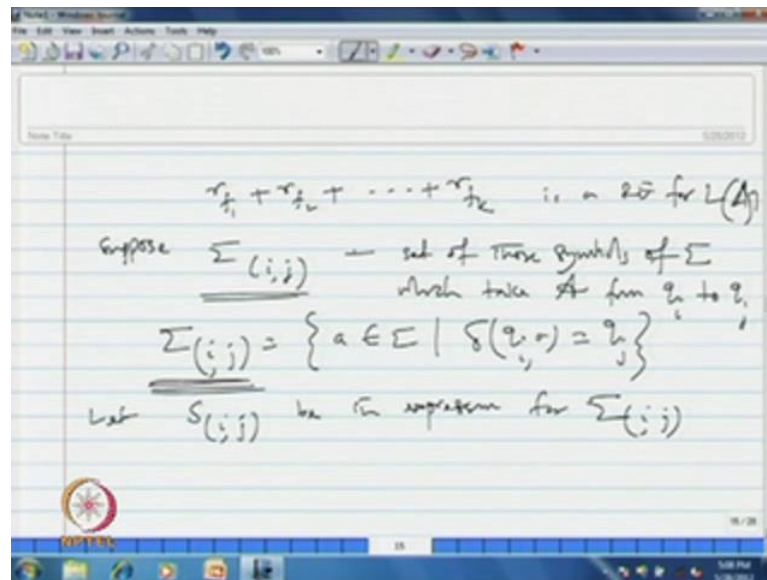 Note1 - Windows Journal
File Edit View Insert Actions Tools Help
Note Title
5/28/2012
r_{f_1} + r_{f_2} + ⋯ + r_{f_k} is a RE for L(A)
Suppose Σ_{(i,j)} — set of those symbols of Σ
which take A from q_i to q_j
Σ_{(i,j)} = { a ∈ Σ | δ(q_i, a) = q_j }
Let S_{(i,j)} be the expression for Σ_{(i,j)}
NPTEL
15